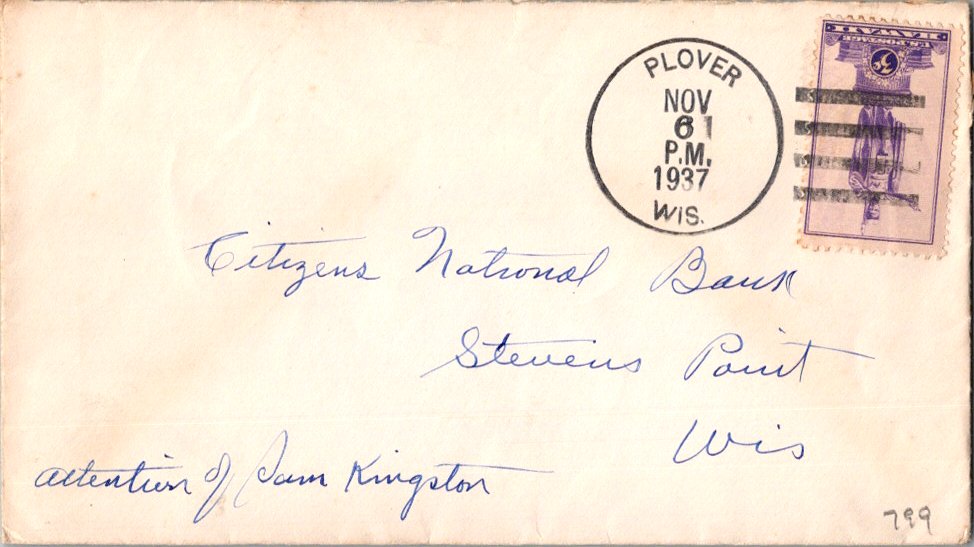 PLOVER
NOV
6 1
P.M.
1937
WIS.
U.S. POSTAGE
HAWAII
3¢
Citizens National Bank
Stevens Point
Wis
attention of Sam Kingston
799